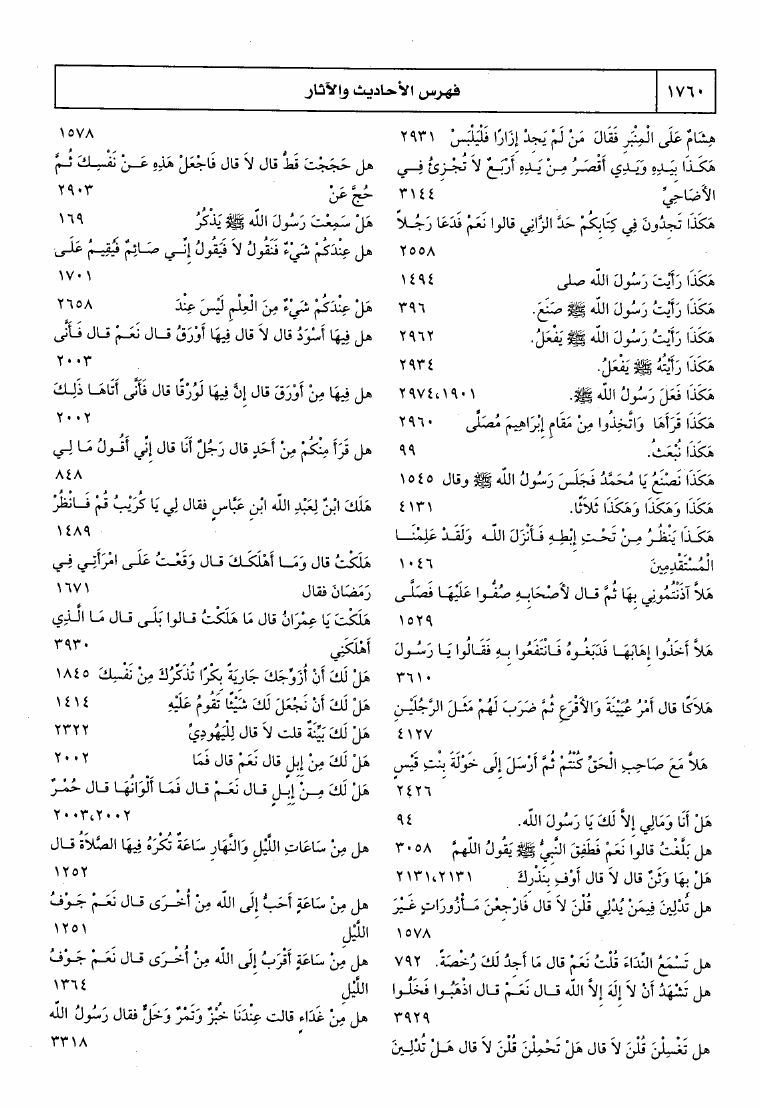 ١٧٦٠
فهرس الأحاديث والآثار
هِشَامٌ عَلَى الْمِنْبَرِ فَقَالَ مَنْ لَمْ يَجِدْ إِزَارًا فَلْيَلْبَسْ ٢٩٣١
هَكَذَا بِيَدِهِ وَيَدِي أَقْصَرُ مِنْ يَدِهِ أَرْبَعٌ لاَ تُجْزِئُ فِي
الأَضَاحِيِّ ٣١٤٤
هَكَذَا تَجِدُونَ فِي كِتَابِكُمْ حَدَّ الزَّانِي قالوا نَعَمْ فَدَعَا رَجُلاً
٢٥٥٨
هَكَذَا رَأَيْتَ رَسُولَ اللَّه صلى ١٤٩٤
هَكَذَا رَأَيْتُ رَسُولَ اللَّه ﷺ صَنَعَ. ٣٩٦
هَكَذَا رَأَيْتُ رَسُولَ اللَّه ﷺ يَفْعَلُ. ٢٩٦٢
هَكَذَا رَأَيْتُهُ ﷺ يَفْعَلُ. ٢٩٣٤
هَكَذَا فَعَلَ رَسُولُ اللَّه ﷺ. ٢٩٧٤،١٩٠١
هَكَذَا قَرَأَهَا وَاتَّخِذُوا مِنْ مَقَامِ إِبْرَاهِيمَ مُصَلًّى ٢٩٦٠
هَكَذَا نُبْعَثُ. ٩٩
هَكَذَا نَصْنَعُ يَا مُحَمَّدُ فَجَلَسَ رَسُولُ اللَّه ﷺ وقال ١٥٤٥
هَكَذَا وَهَكَذَا وَهَكَذَا ثَلاَثًا. ٤١٣١
هَكَذَا يَنْظُرُ مِنْ تَحْتِ إِبْطِهِ فَأَنْزَلَ اللَّه وَلَقَدْ عَلِمْنَا
الْمُسْتَقْدِمِينَ ١٠٤٦
هَلاَّ آذَنْتُمُونِي بِهَا ثُمَّ قال لأَصْحَابِهِ صُفُّوا عَلَيْهَا فَصَلَّى
١٥٢٩
هَلاَّ أَخَذُوا إِهَابَهَا فَدَبَغُوهُ فَانْتَفَعُوا بِهِ فَقَالُوا يَا رَسُولَ
٣٦١٠
هَلاَكًا قال أَمْرُ عُيَيْنَةَ وَالأَقْرَعِ ثُمَّ ضَرَبَ لَهُمْ مَثَلَ الرَّجُلَيْنِ
٤١٢٧
هَلاَّ مَعَ صَاحِبِ الْحَقِّ كُنْتُمْ ثُمَّ أَرْسَلَ إِلَى خَوْلَةَ بِنْتِ قَيْسٍ
٢٤٢٦
هَلْ أَنَا وَمَالِي إِلاَّ لَكَ يَا رَسُولَ اللَّه. ٩٤
هل بَلَّغْتُ قالوا نَعَمْ فَطَفِقَ النَّبِيُّ ﷺ يَقُولُ اللَّهمَّ ٣٠٥٨
هَلْ بِهَا وَثَنٌ قال لاَ قال أَوْفِ بِنَذْرِكَ ٢١٣١،٢١٣١
هل تُدْلِينَ فِيمَنْ يُدْلِي قُلْنَ لاَ قال فَارْجِعْنَ مَأْزُورَاتٍ غَيْرَ
١٥٧٨
هل تَسْمَعُ النِّدَاءَ قُلْتُ نَعَمْ قال مَا أَجِدُ لَكَ رُخْصَةً. ٧٩٢
هل تَشْهَدُ أَنْ لاَ إِلَهَ إِلاَّ اللَّه قال نَعَمْ قال اذْهَبُوا فَخَلُّوا
٣٩٢٩
هل تَغْسِلْنَ قُلْنَ لاَ قال هَلْ تَحْمِلْنَ قُلْنَ لاَ قال هَلْ تُدْلِينَ
١٥٧٨
هل حَجَجْتَ قَطُّ قال لاَ قال فَاجْعَلْ هَذِهِ عَنْ نَفْسِكَ ثُمَّ
حُجَّ عَنْ ٢٩٠٣
هَلْ سَمِعْتَ رَسُولَ اللَّه ﷺ يَذْكُرُ ١٦٩
هل عِنْدَكُمْ شَيْءٌ فَنَقُولُ لاَ فَيَقُولُ إِنِّي صَائِمٌ فَيُقِيمُ عَلَى
١٧٠١
هَلْ عِنْدَكُمْ شَيْءٌ مِنَ الْعِلْمِ لَيْسَ عِنْدَ ٢٦٥٨
هل فِيهَا أَسْوَدُ قال لاَ قال فِيهَا أَوْرَقُ قال نَعَمْ قال فَأَنَّى
٢٠٠٣
هل فِيهَا مِنْ أَوْرَقَ قال إِنَّ فِيهَا لَوُرْقًا قال فَأَنَّى أَتَاهَا ذَلِكَ
٢٠٠٢
هل قَرَأَ مِنْكُمْ مِنْ أَحَدٍ قال رَجُلٌ أَنَا قال إِنِّي أَقُولُ مَا لِي
٨٤٨
هَلَكَ ابْنٌ لِعَبْدِ اللَّه ابْنِ عَبَّاسٍ فقال لِي يَا كُرَيْبُ قُمْ فَانْظُرْ
١٤٨٩
هَلَكْتُ قال وَمَا أَهْلَكَكَ قال وَقَعْتُ عَلَى امْرَأَتِي فِي
رَمَضَانَ فقال ١٦٧١
هَلَكْتَ يَا عِمْرَانُ قال مَا هَلَكْتُ قالوا بَلَى قال مَا الَّذِي
أَهْلَكَنِي ٣٩٣٠
هَلْ لَكَ أَنْ أُزَوِّجَكَ جَارِيَةً بِكْرًا تُذَكِّرُكَ مِنْ نَفْسِكَ ١٨٤٥
هَلْ لَكَ أَنْ نَجْعَلَ لَكَ شَيْئًا تَقُومُ عَلَيْهِ ١٤١٤
هَلْ لَكَ بَيِّنَةٌ قلت لاَ قال لِلْيَهُودِيِّ ٢٣٢٢
هَلْ لَكَ مِنْ إِبِلٍ قال نَعَمْ قال فَمَا ٢٠٠٢
هَلْ لَكَ مِنْ إِبِلٍ قال نَعَمْ قال فَمَا أَلْوَانُهَا قال حُمْرٌ
٢٠٠٣،٢٠٠٢
هل مِنْ سَاعَاتِ اللَّيْلِ وَالنَّهَارِ سَاعَةٌ تُكْرَهُ فِيهَا الصَّلاَةُ قال
١٢٥٢
هل مِنْ سَاعَةٍ أَحَبُّ إِلَى اللَّه مِنْ أُخْرَى قال نَعَمْ جَوْفُ
اللَّيْلِ ١٢٥١
هل مِنْ سَاعَةٍ أَقْرَبُ إِلَى اللَّه مِنْ أُخْرَى قال نَعَمْ جَوْفُ
اللَّيْلِ ١٣٦٤
هل مِنْ غَدَاءٍ قالت عِنْدَنَا خُبْزٌ وَتَمْرٌ وَخَلٌّ فقال رَسُولُ اللَّه
٣٣١٨